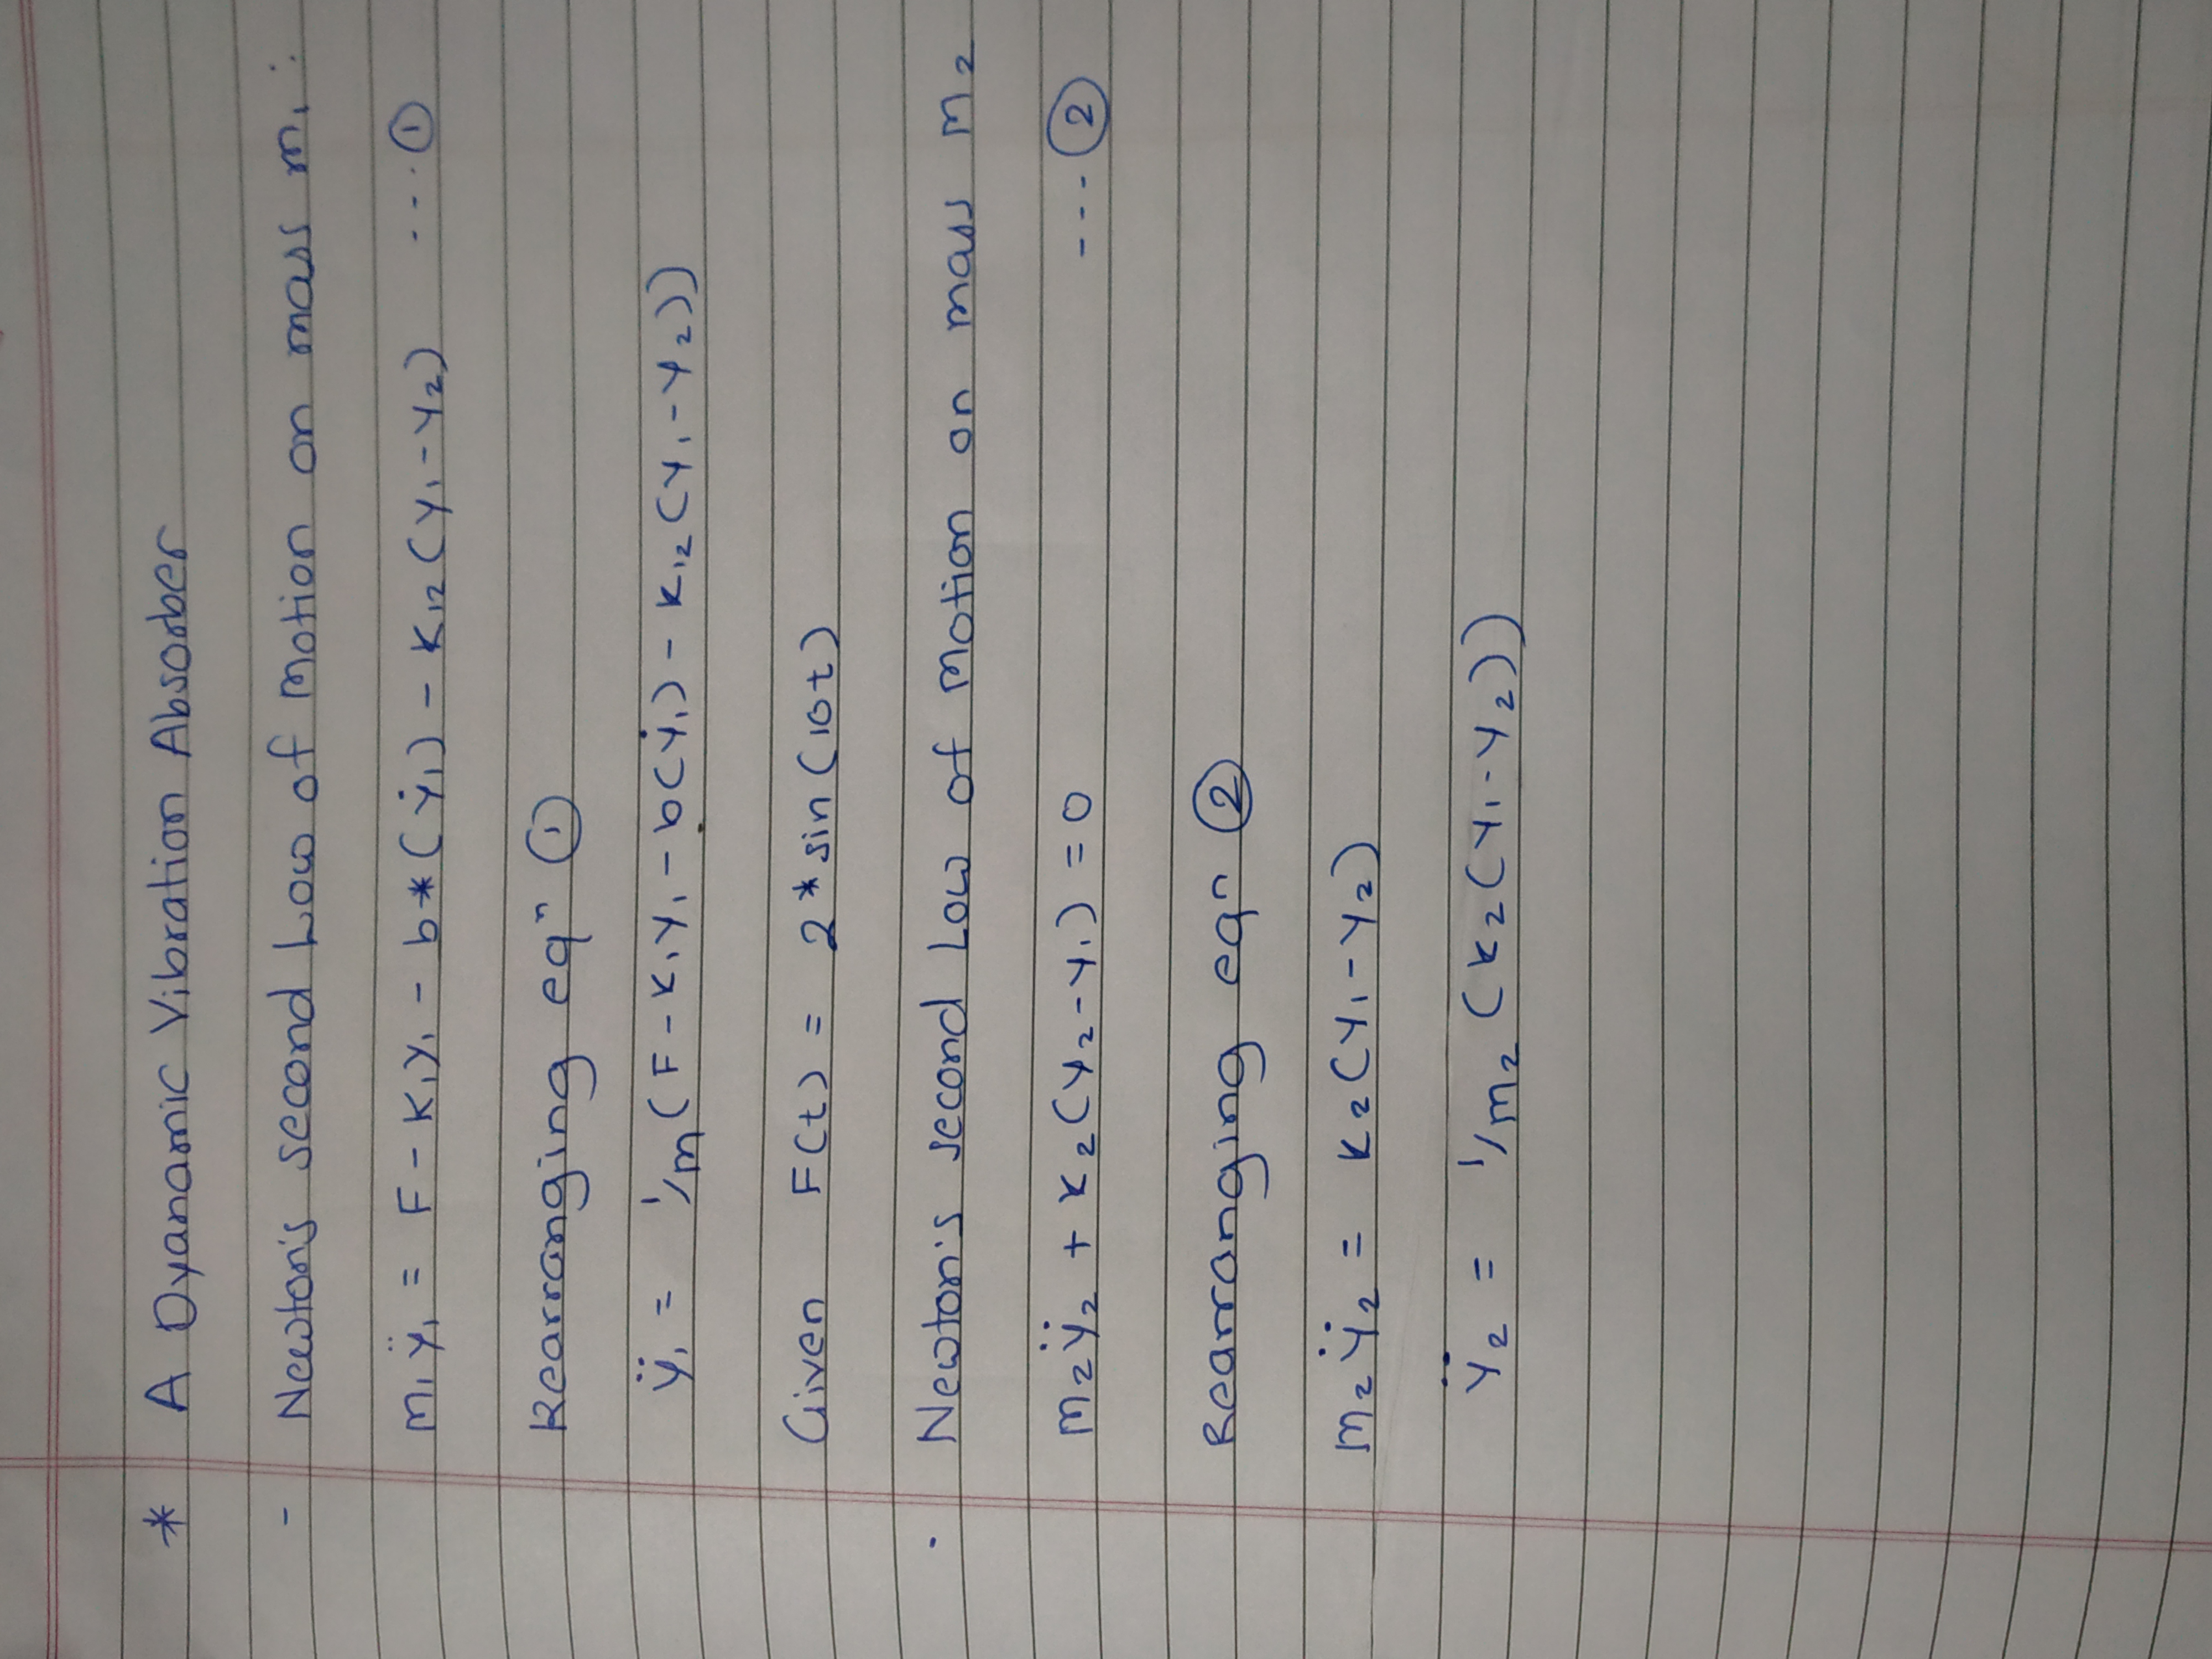 * A Dyanamic Vibration Absorber
- Newton's second Low of motion on mass m₁ :
m₁ÿ₁ = F - K₁y₁ - b*(ẏ₁) - K₁₂(y₁-y₂) ---①
Rearranging eqⁿ ①
ÿ₁ = 1/m(F - K₁y₁ - b(ẏ₁) - K₁₂(y₁-y₂))
Given F(t) = 2*sin(10t)
· Newton's second Low of motion on mass m₂
m₂ÿ₂ + K₂(y₂-y₁) = 0 ---②
Rearranging eqⁿ ②
m₂ÿ₂ = K₂(y₁-y₂)
ÿ₂ = 1/m₂ (K₂(y₁-y₂))